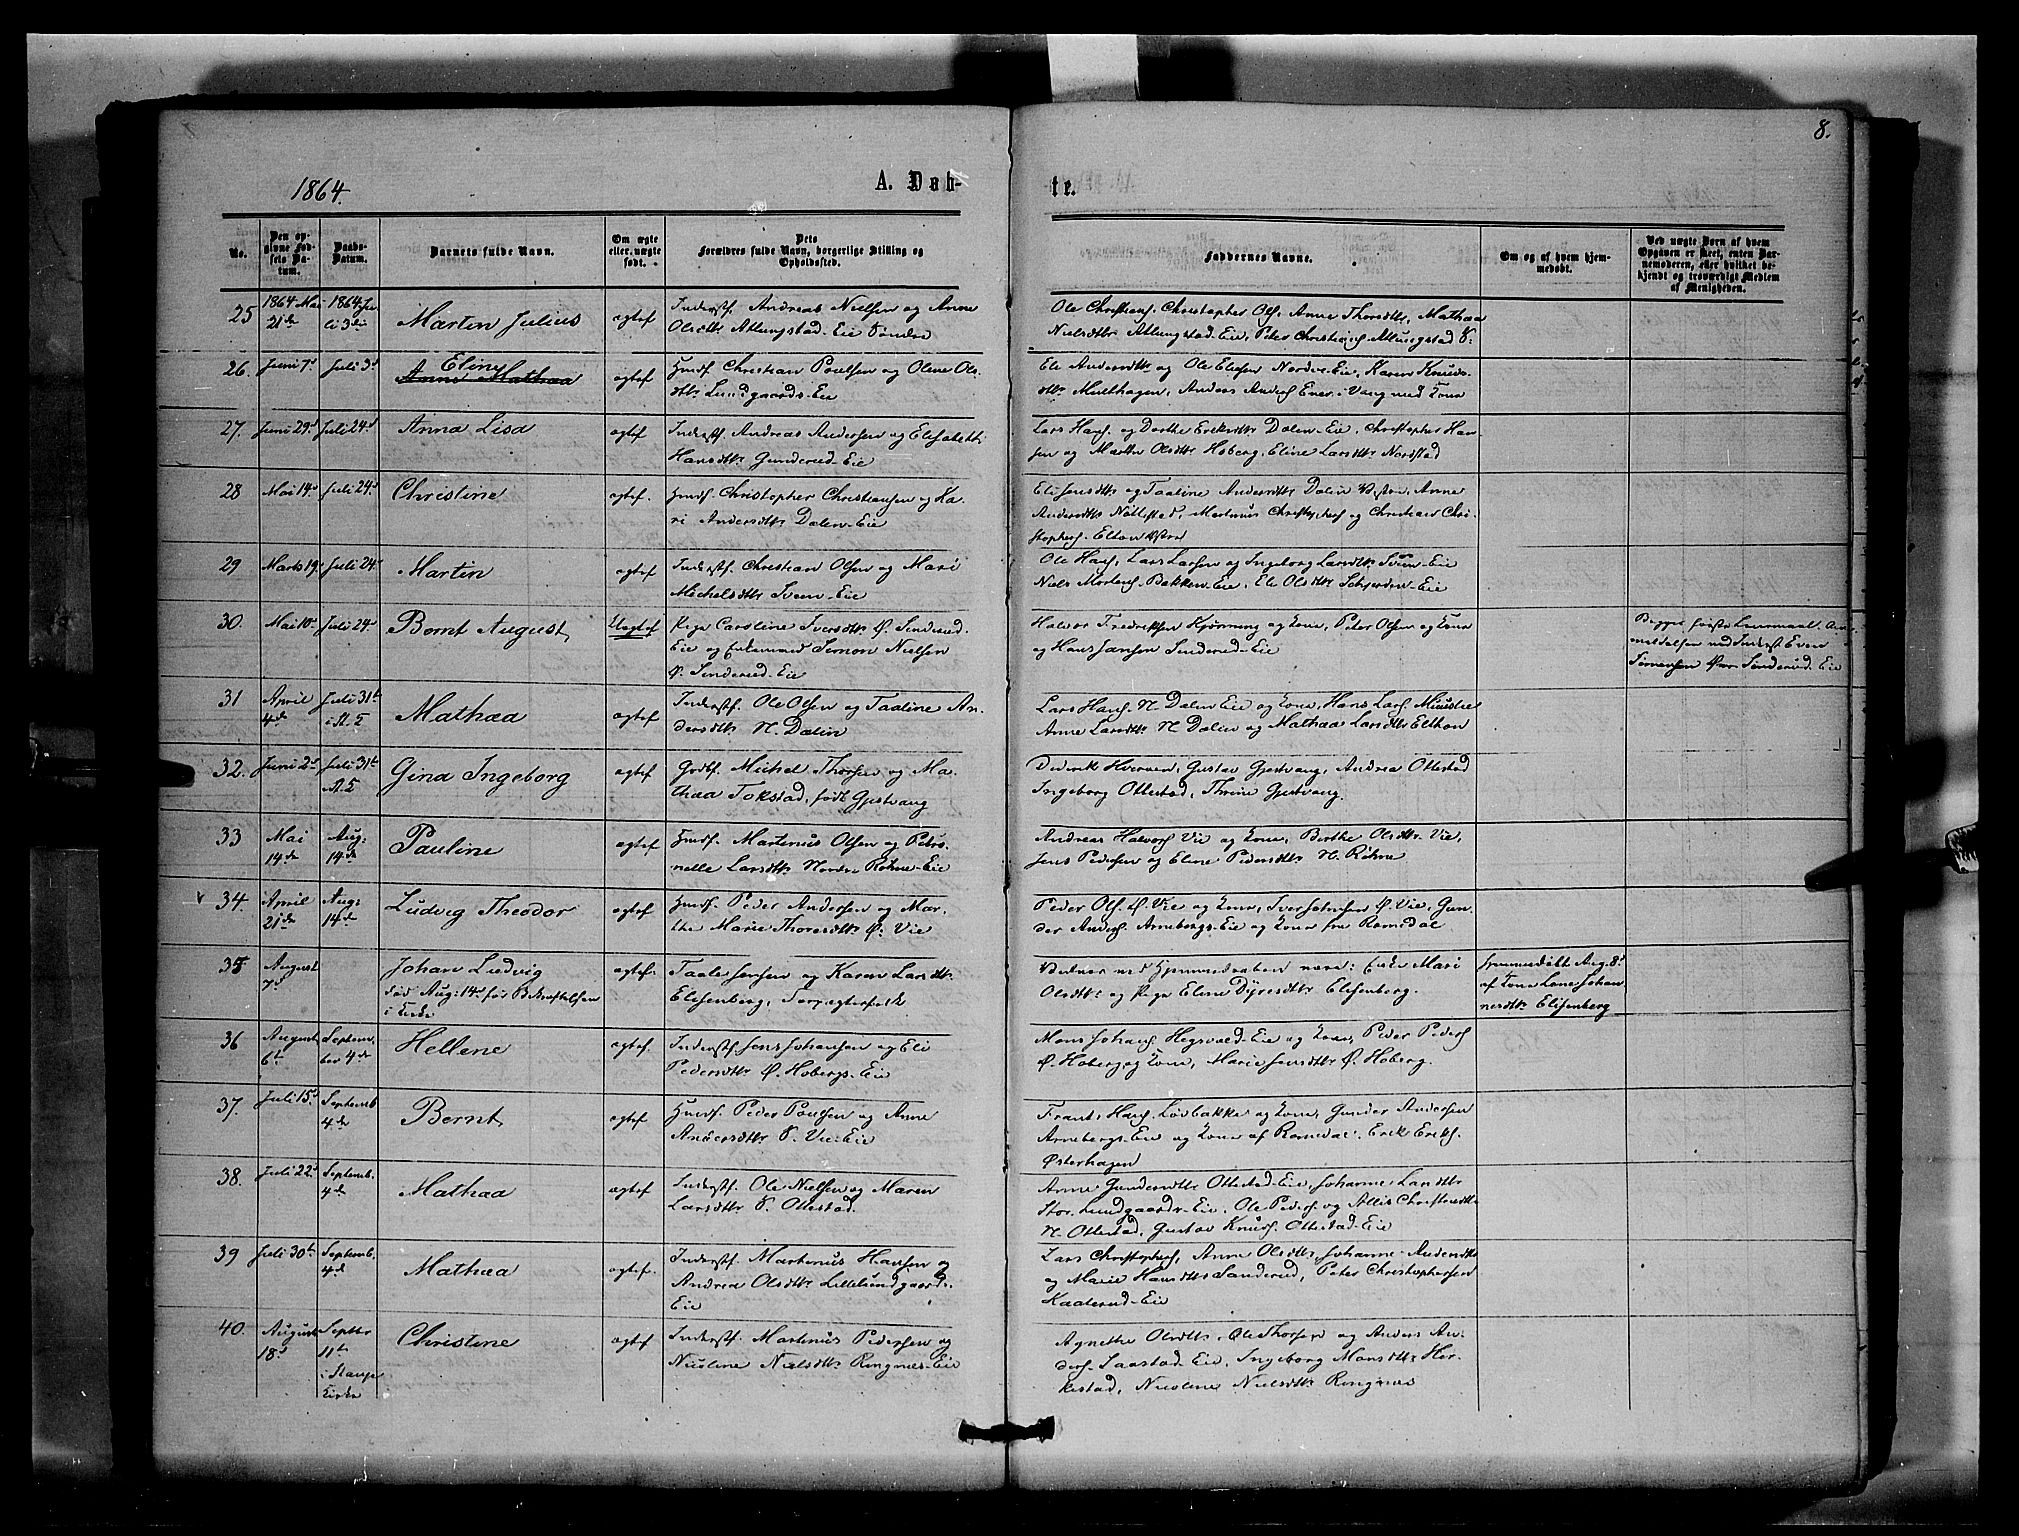 8.
1864.
A. Døb-
te.
No.
Den opgivne Fødsels Datum.
Daabs-Datum.
Barnets fulde Navn.
Om ægte eller uægte født.
Dets Forældres fulde Navn, borgerlige Stilling og Opholdssted.
Faddernes Navne.
Om og af hvem hjemmedøbt.
Ved uægte Børn af hvem Opgaven er skeet, enten Barnemoderen, eller hvilket bekjendt og troværdigt Medlem af Menigheden.
25 1864 Mai 21de 1864 Juli 3die Martin Julius ægtef Inderstf. Andreas Nielsen og Anne
Olsdttr Atlungstad-Eie Søndre
Ole Christians. Christopher Ols. Anne Thoresdttr, Mathea
Nielsdttr Atlungstad-Eie, Peter Christians. Atlungstad S.
26. Juni 7d Juli 3d Eline
Anne Mathea
ægtef Huusf. Christian Poulsen og Oline Ols-
dttr Lundgaards-Eie
Eli Andersdttr og Ole Elisen Nordvi-Eie, Karen Knuds-
dttr Muelhagen, Anders Anders. Ener i Vang med Kone
27. Juni 29d Juli 24d Anna Lisa ægtef Inderstf. Andreas Andersen og Elisabeth
Hansdttr Gunderud-Eie
Lars Hans. og Dorthe Eriksdttr Dælen-Eie, Christopher Han-
sen og Marthe Olsdttr Hoberg, Eline Larsdttr Nordstad
28 Mai 14d Juli 24d Christine ægtef. Huusf. Christopher Christiansen og Ka-
ri Andersdttr Dælen-Eie
Eli Jensdttr og Taaline Andersdttr Dælin Østre, Anne
Andersdttr Nøttestad, Martinus Christophers. og Christian Chri-
stophers. Elton Østre
29 Marts 19. Juli 24d Martin ægtef Inderstf. Christian Olsen og Mari
Michelsdttr Sveen-Eie
Ole Hans. Lars Larsen og Ingeborg Larsdttr Sveen-Eie
Niels Mortens. Bakken-Eie, Eli Olsdttr Skjerden-Eie
30. Mai 10d Juli 24d Bernt August Uægtef Pige Caroline Iversdttr Ø. Sinderud-
Eie og Enkemand Simon Nielsen
Ø. Sinderud-Eie
Halvor Fredriksen Hjørning og Kone, Peter Olsen og Kone
og Hans Jansen Sinderud-Eie
Begges første Leiermaal. An-
meldelsen ved Inderst Even
Simensen Sinderud-Eie
31 April 4de Juli 31te i St. K Mathea ægtef Inderstf. Ole Olsen og Taaline An-
dersdttr N. Dælin
Lars Hans. N. Dælen Eie og Kone, Hans Lars. Miustre
Anne Larsdttr N Dælin og Mathea Larsdttr Elthon
32. Juni 2d Juli 31te St. K Gina Ingeborg ægtef Godbf. Michel Thorsen og Ma-
thea Tokstad, født Gjestvang
Diderik Hverven, Gustav Gjestvang, Andrea Ottestad
Ingeborg Ottestad, Thrine Gjestvang.
33 Mai 14de Aug: 14de Pauline ægtef Huusf. Martinus Olsen og Petro-
nelle Larsdttr Nordre Røhne-Eie
Andreas Halvors. Vie og Kone, Berthe Olsdttr Vie,
Jens Pedersen og Eline Pedersdttr N. Røhne
34. April 21de Aug: 14de Ludvig Theodor ægtef Huusf. Peder Andersen og Mar-
the Marie Thoresdttr Ø. Vie
Peder Ols. Ø. Vie og Kone, Iver Johnsen Ø. Vie, Gun-
der Anders. Arnebergs-Eie og Kone fra Romedal
35 August 7d Johan Ludvig
død Aug: 14d før Bekræftelsen
i Kirke
ægtef. Taale Jensen og Karen Lars dttr
Elisenberg,
Vidner ved Hjemmedaaben være: Enke Mari
Olsdttr og Pige Eline Dyresdttr Elisenberg.
Hjemmedøbt Aug. 8d
af Kone Lene Johan
nesdttr Elisenberg
36 August 6te Septem-
ber 4de Hellene ægtef. Inderstf. Jens Johansen og Eli
Pedersdttr Ø. Hobergs-Eie
Mons Johans. Hegsvold-Eie og Kone, Peder Peders.
Ø. Hoberg og Kone, Marie Jensdttr Ø. Hoberg.
37. Juli 15d Septemb 4de Bernt ægtef Huusf. Peder Poulsen og Anne
Andersdttr S. Vie-Eie
Frants Hans. Løvbakke og Kone, Gunder Andersen
Arnebergs-Eie og Kone af Romedal, Erik Eriks.
Østerhagen
38. Juli 22d Septemb. 4de Mathea ægtef Inderstf. Ole Nielsen og Maren
Larsdttr S. Ottestad.
Anne Gundersdttr Ottestad-Eie, Johanne Larsdttr
Stor. Lundgaards-Eie, Ole Peders. og Allis Christensdttr
N. Ottestad, Gustav Knuds. Ottestad-Eie
39 Juli 30te Septemb. 4de Mathea ægtef. Inderstf. Martinus Hansen og
Andrea Olsdttr Lillelundgaard-
Eie
Lars Christophers, Anne Olsdttr Johanne Andersdttr
og Marie Hansdttr Sanderud, Peter Christophersen
Kaaterud-Eie
40. August 18d Septbr 11te
i Stange
Kirke
Christine ægtef Inderstf. Martinus Pedersen og
Nicoline Nielsdttr Ringnes-Eie
Agnethe Olsdttr, Ole Thorsen og Anders An-
ders. Saastad-Eie, Ingeborg Monsdttr Her-
kestad, Nicoline Nielsdttr Ringnes